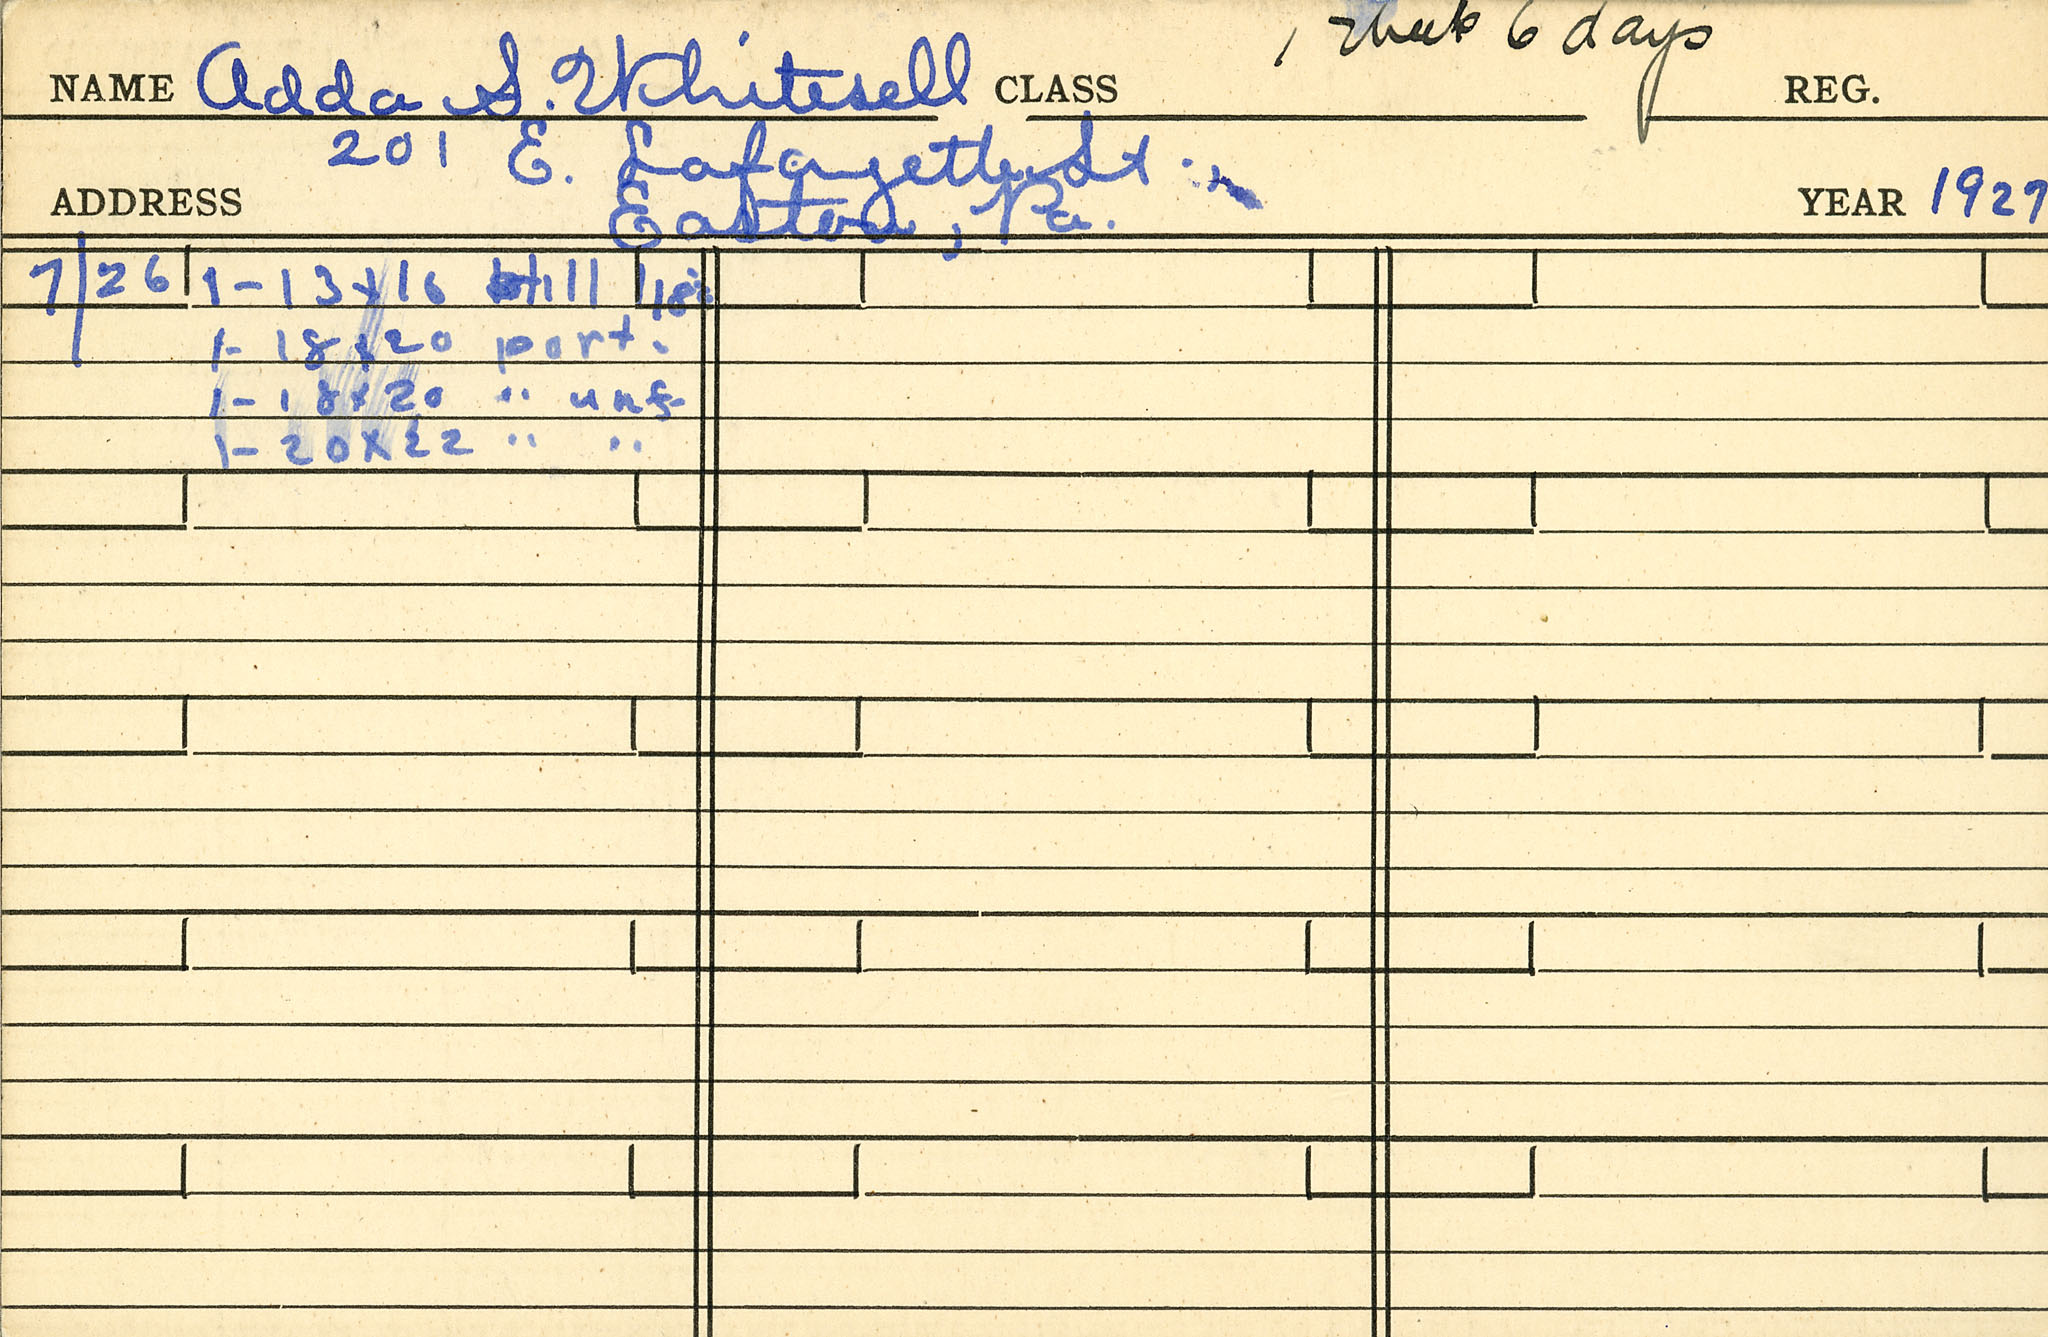 1 Week 6 days
NAME Adda S. Whitesell CLASS REG.
201 E. Lafayette St.
ADDRESS Easton, Pa. YEAR 1927
7/26 1-13x16 still
1-18x20 port.
1-18x20 " unf
1-20x22 " "